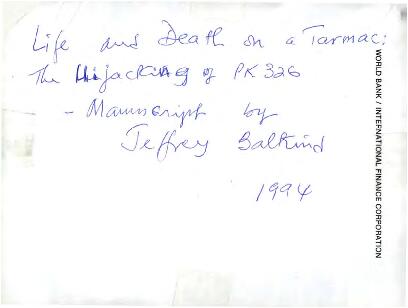 Life and Death on a Tarmac:
The Hijacking of PK 326
- Manuscript by
Jeffrey Balkind
1994
WORLD BANK / INTERNATIONAL FINANCE CORPORATION